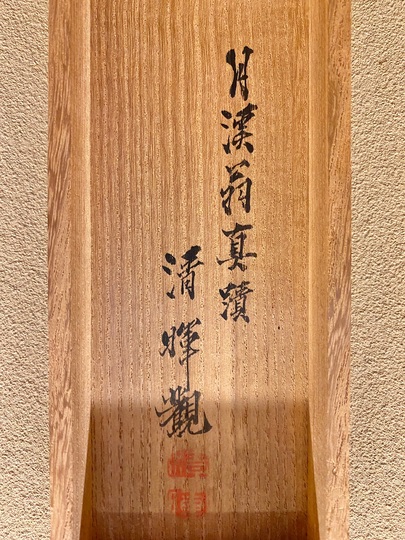 月渓翁真蹟
清暉觀